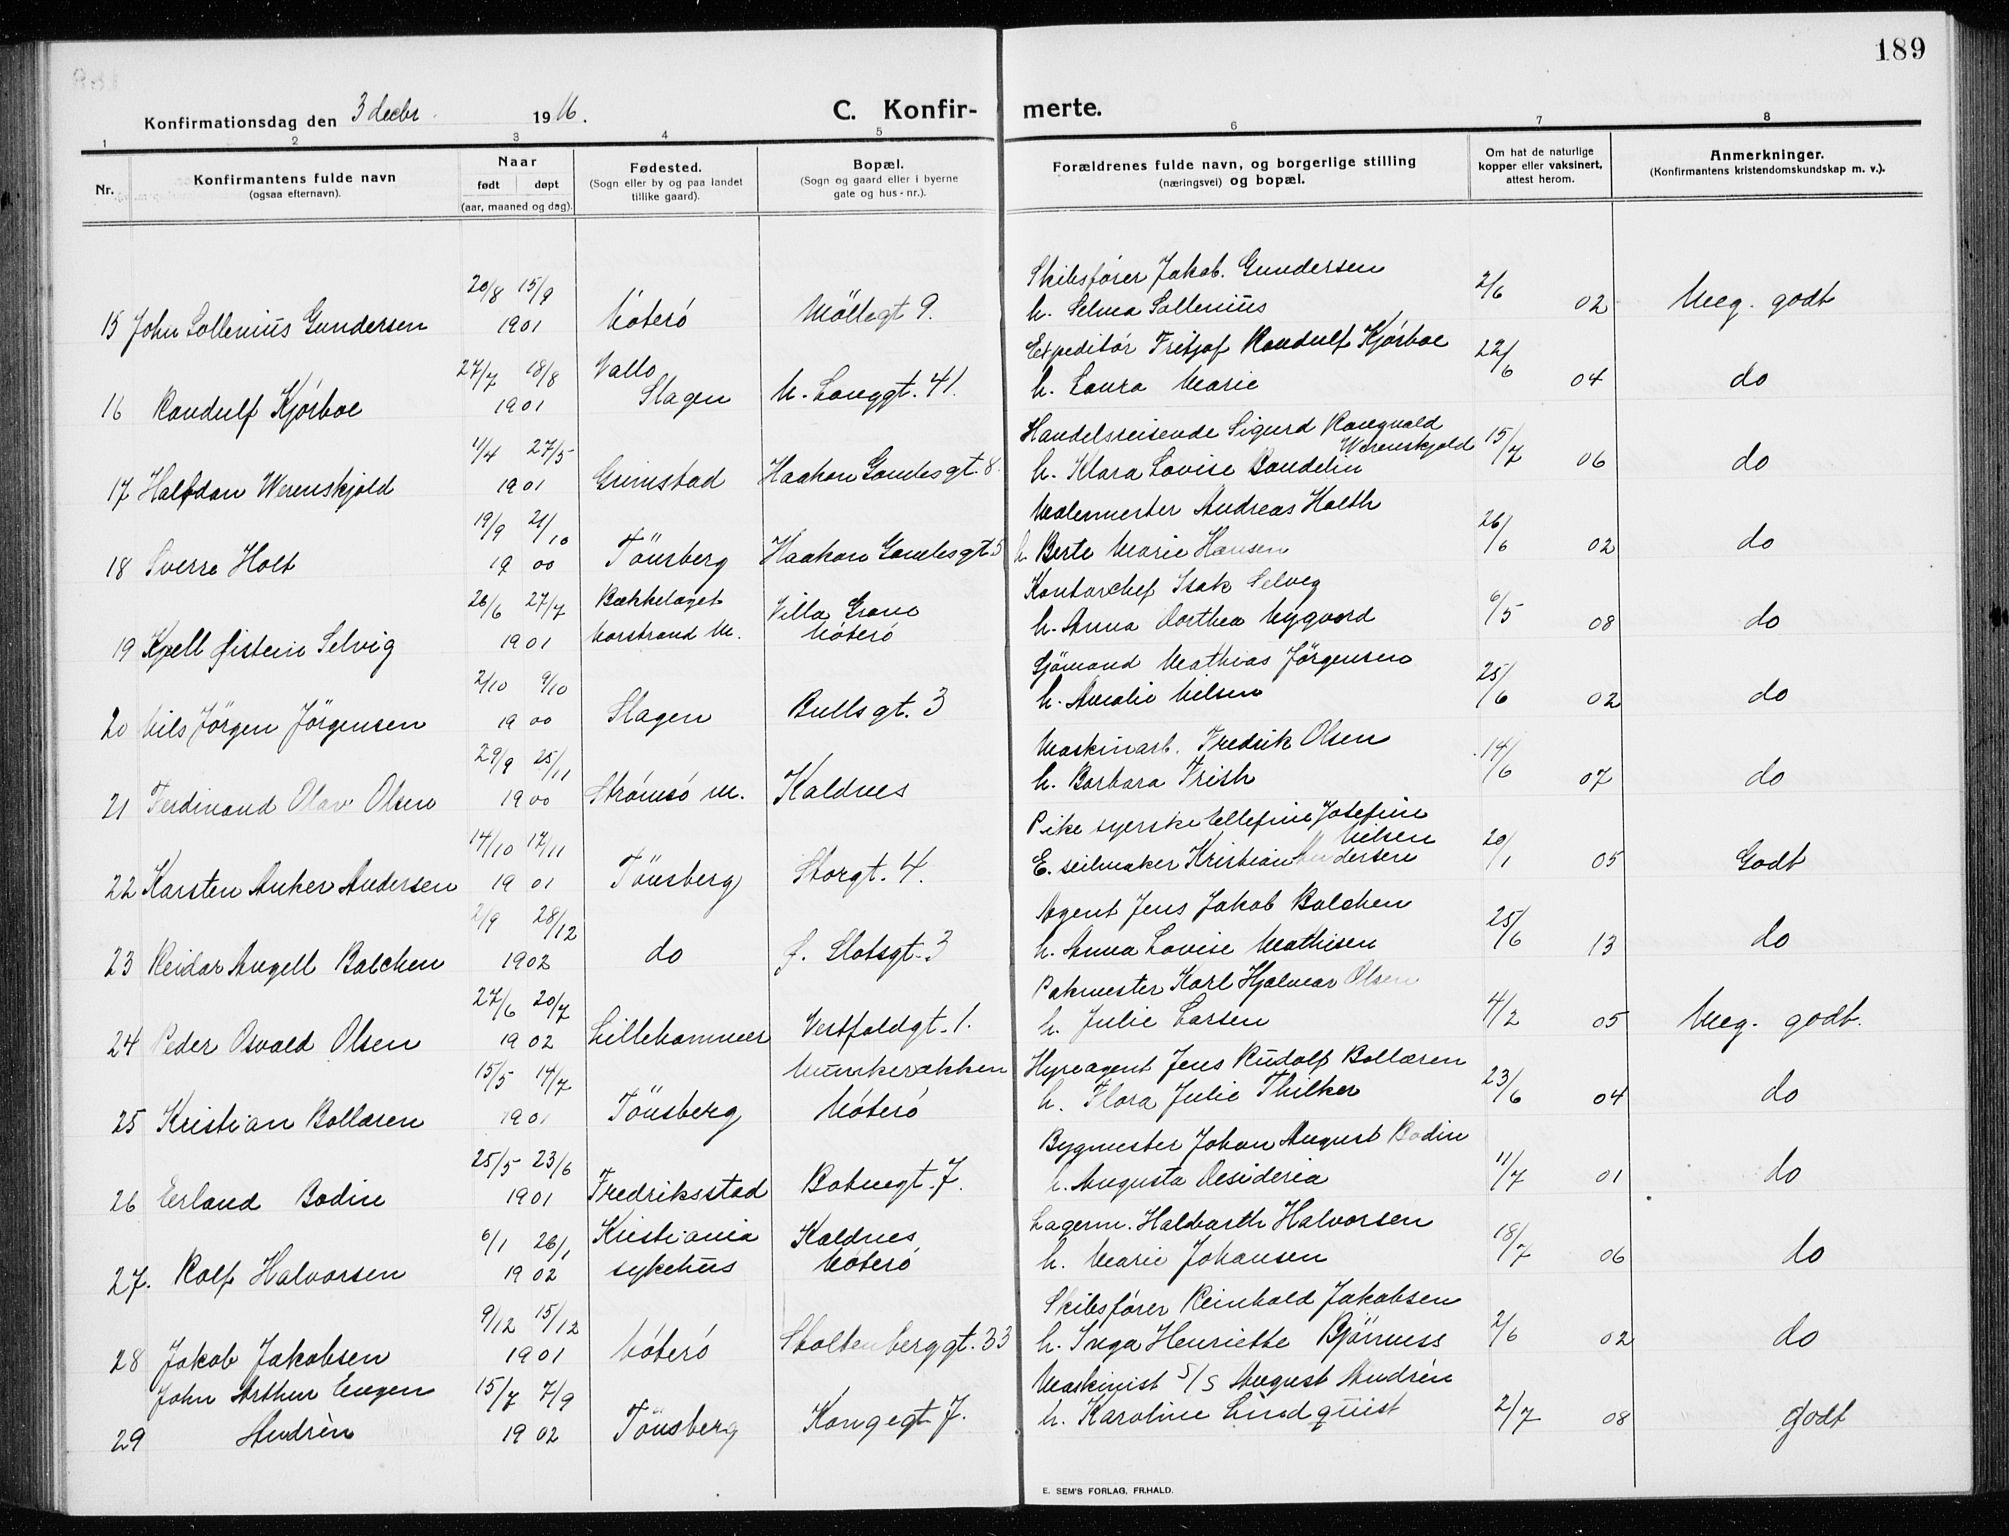 189
Konfirmationsdag den 3 decbr. 1916.
C. Konfirmerte.
1 2 3 4 5 6 7 8
Nr.
Konfirmantens fulde navn
(ogsaa efternavn).
Naar
født døpt
(aar, maaned og dag).
Fødested.
(Sogn eller by og paa landet
tillike gaard).
Bopæl.
(Sogn og gaard eller i byerne
gate og hus-nr.).
Forældrenes fulde navn, og borgerlige stilling
(næringsvei) og bopæl.
Om hat de naturlige
kopper eller vaksinert,
attest herom.
Anmerkninger.
(Konfirmantens kristendomskundskap m. v.).
20/8 15/9 Skibsfører Jakob Gundersen
15 John Sollenius Gundersen 1901 Nøterø Möllegt 9. h. Selma Sollenius 2/6 02 Meg. godt
27/7 18/8 Vallo Expeditör Fritjof Randulf Kjørboe
16 Randulf Kjørboe 1901 Slagen N. Langgt. 41. h. Laura Marie 22/6 04 do
1/4 27/5 Handelsreisende Sigurd Rangvald Werenskjold
17 Halfdan Werenskjold 1901 Grimstad Haakon Gamlesgt. 8. h. Klara Lovise Bandelin 15/7 06 do
19/9 21/10 Malermester Andreas Holth
18 Sverre Holt 1900 Tönsberg Haakon Gamlesgt 5 h. Berte Marie Hansen 26/6 02 do
26/6 27/7 Bækkelaget Villa Grane Kontorchef Isak Selvig
19 Kjell Øistein Selvig 1901 Norstrand M. Nøterø h. Anna Dorthea Nygaard 6/5 08 do
2/10 9/10 Sjömand Mathias Jörgensen
20 Nils Jörgen Jörgensen 1900 Slagen Bullsgt. 3 h. Amalie Nilsen 25/6 02 do
29/9 25/11 Maskinarb. Fredrik Olsen
21 Ferdinand Olav Olsen 1900 Strømsø m. Kaldnes h. Barbara Frish 14/6 07 do
14/10 17/11 Pike syerske Ellefine Josefine Nilsen
22 Karsten Anker Andersen 1901 Tönsberg Storgt. 4. E. seilmaker Kristian Andersen 20/1 05 Godt
2/9 28/12 Agent Jens Jakob Balchen
23 Reidar Angell Balchen 1902 do f. Slotsgt. 3 h. Anna Lovise Mathisen 25/6 13 do
27/6 20/7 Pakmester Karl Hjalmar Olsen
24 Peder Osvald Olsen 1902 Lillehammer Vestfoldgt. 1. h. Julie Larsen 4/2 05 Meg. godt.
15/5 14/7 Munkerækken Hyreagent Jens Rudolf Bollæren
25 Kristian Bollæren 1901 Tönsberg Nøterø h. Flora Julie Thilker 23/6 04 do
25/5 23/6 Bygmester Johan August Bodin
26 Erland Bodin 1901 Fredriksstad Botnegt. 7. h. Augusta Desideria 11/7 01 do
6/1 26/1 Kristiania Kaldnes Lagerm. Haldbarth Halvorsen
27. Rolf Halvorsen 1902 sykehus Nøterø h. Marie Johansen 18/7 06 do
9/12 15/12 Skibsfører Reinhold Jakobsen
28 Jakob Jakobsen 1901 Nøterø Stoltenberggt. 33 h. Inga Henriette Bjönness 2/6 02 do
John Arthur Eugen 15/7 7/9 Maskinist S/S August Andrén
29 Andrén 1902 Tönsberg Kongegt 7. h. Karoline Lindquist 2/7 08 Godt
E. SEM'S FORLAG, FR.HALD.